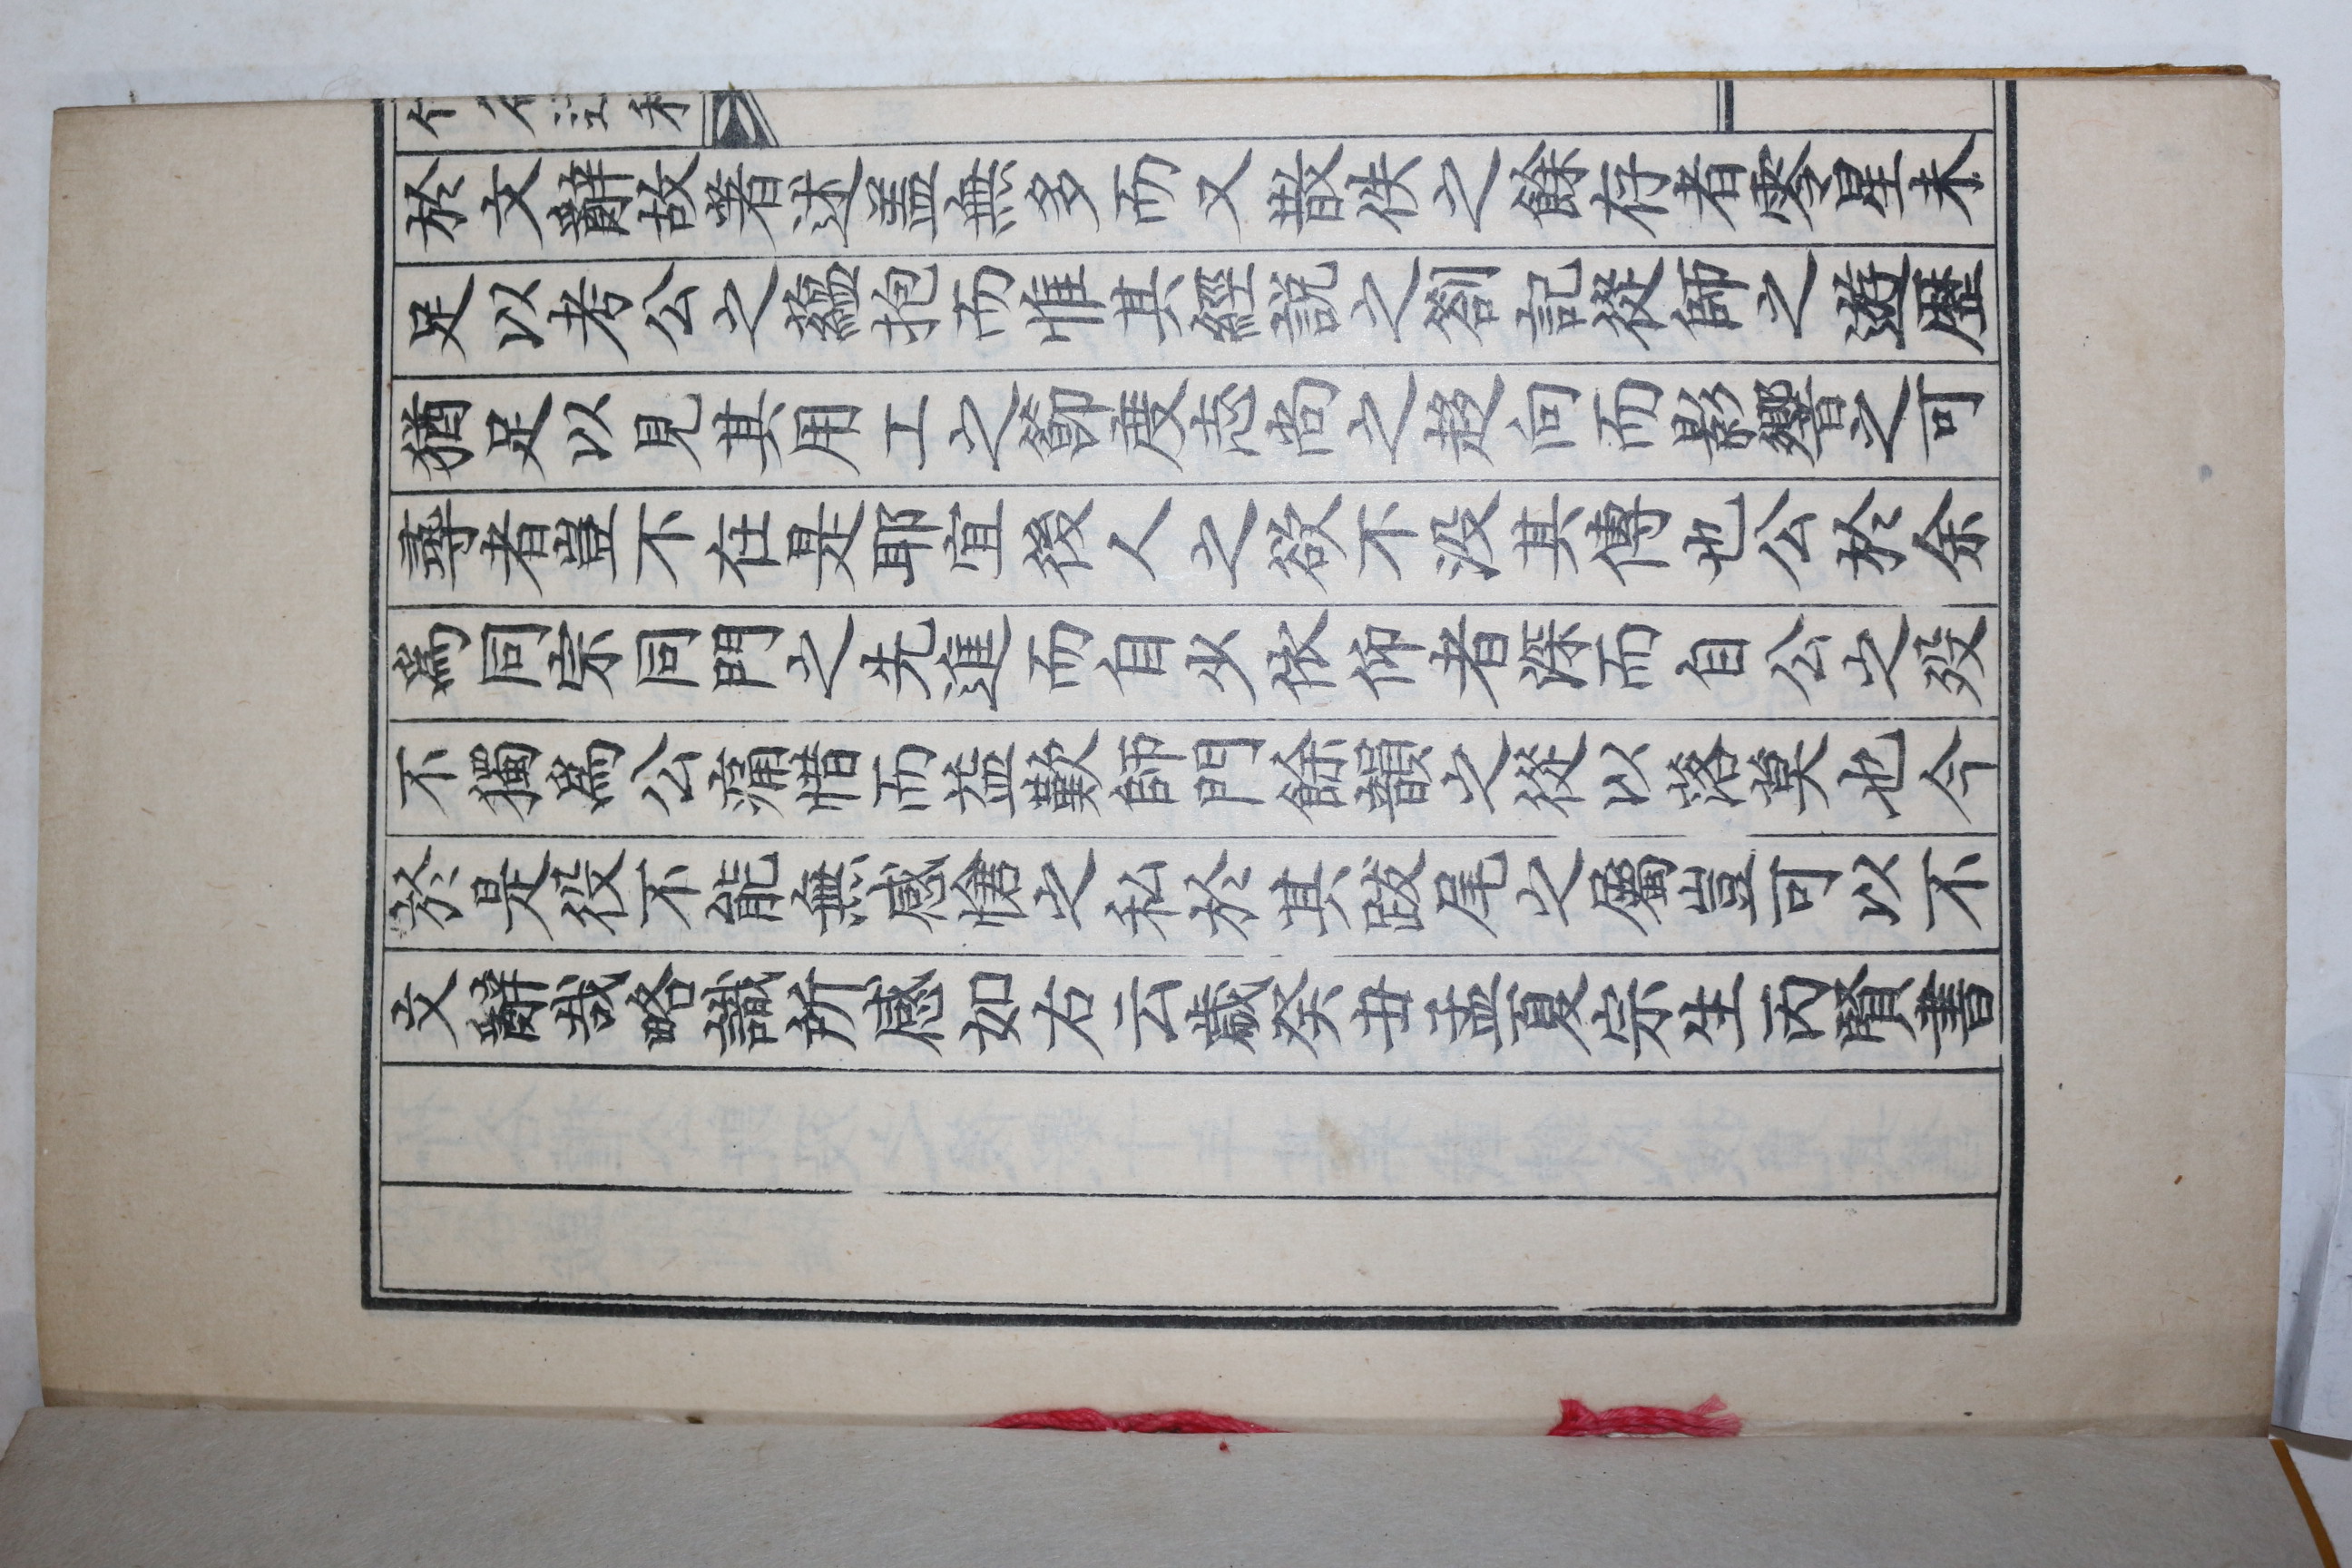 於文辭故著述盖無多而又散佚之餘存者零星未
足以考公之蘊抱而惟其經説之劄記從師之遊歷
猶足以見其用工之節度志尚之趍向而影響之可
尋者豈不在是耶宜後人之欲不没其傳也公於余
爲同宗同門之先進而自少依仰者深而自公之歿
不獨爲公痛惜而益歎師門餘韻之從以落莫也今
於是役不能無感愴之私於其跋尾之屬豈可以不
文辭哉略識所感如右云歲癸丑孟夏宗生丙賢書